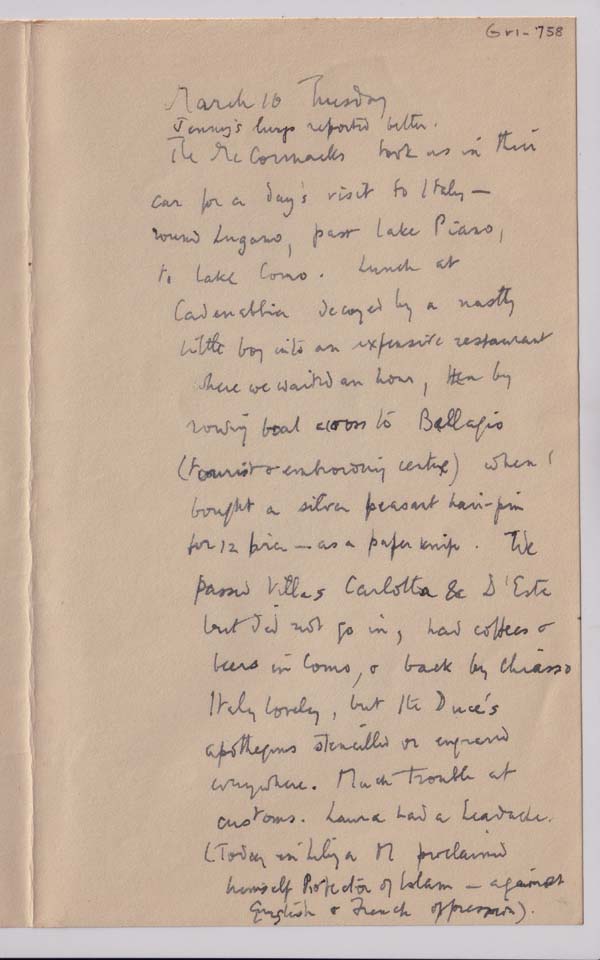 Gri-738
March 16 Tuesday
Jenny's lungs reported better.
The McCormacks took us in their
car for a day's visit to Italy —
round Lugano, past Lake Piano,
to Lake Como. Lunch at
Cadenabbia decoyed by a nasty
little boy into an expensive restaurant
where we waited an hour, then by
rowing boat across to Bellagio
(tourist & embroidering centre) where I
bought a silver peasant hair-pin
for 12 — as a paper knife. We
passed Villas Carlotta & D'Este
but did not go in, had coffees &
beers in Como, & back by Chiasso
Italy lovely, but the Duce's
apothegms stencilled or engraved
everywhere. Much trouble at
customs. Laura had a headache.
(Today in Libya M proclaimed
himself Protector of Islam — against
English & French oppression).